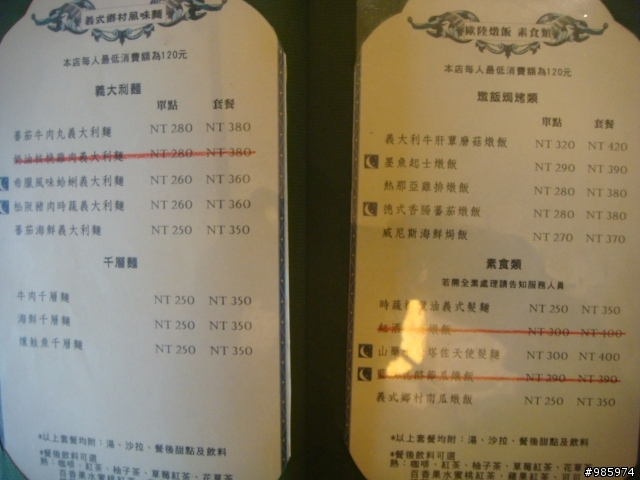 義式鄉村風味麵
本店每人最低消費額為120元
義大利麵
單點 套餐
蕃茄牛肉丸義大利麵 NT 280 NT 380
雞肉義大利麵 NT 280 NT 380
希臘風味蛤蜊義大利麵 NT 260 NT 360
松阪豬肉時蔬義大利麵 NT 260 NT 360
蕃茄海鮮義大利麵 NT 250 NT 350
千層麵
牛肉千層麵 NT 250 NT 350
海鮮千層麵 NT 250 NT 350
燻鮭魚千層麵 NT 250 NT 350
*以上套餐均附：湯、沙拉、餐後甜點及飲料
*餐後飲料可選
熱：咖啡、紅茶、柚子茶、草莓紅茶、花草茶
百香果水蜜桃紅茶、蘋果紅茶
歐陸燉飯 素食類
本店每人最低消費額為120元
燉飯焗烤類
單點 套餐
義大利牛肝蕈磨菇燉飯 NT 320 NT 420
墨魚起士燉飯 NT 290 NT 390
熱那亞雞排燉飯 NT 280 NT 380
德式香腸蕃茄燉飯 NT 280 NT 380
威尼斯海鮮焗飯 NT 270 NT 370
素食類
若需全素處理請告知服務人員
時蔬 油義式髮麵 NT 250 NT 350
起 燉飯 NT 300 NT 400
山 塔佐天使髮麵 NT 300 NT 400
節瓜燉飯 NT 290 NT 390
義式鄉村南瓜燉飯 NT 250 NT 350
*以上套餐均附：湯、沙拉、餐後甜點及飲料
*餐後飲料可選
熱：咖啡、紅茶、柚子茶、草莓紅茶、花草茶
百香果水蜜桃紅茶、蘋果紅茶
#985974